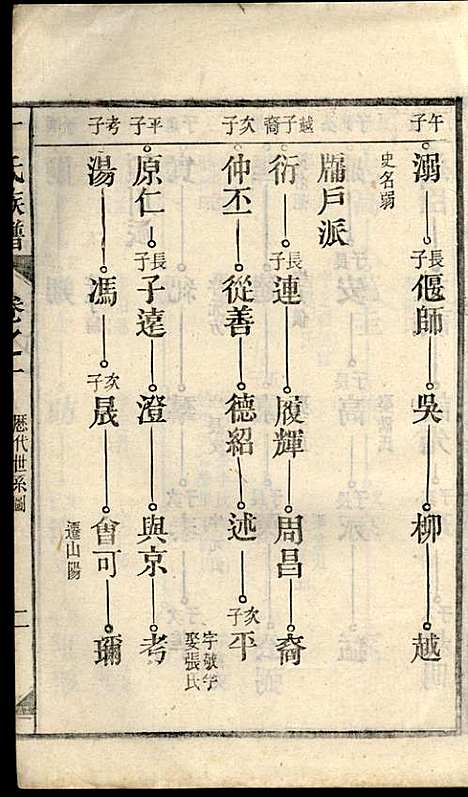 午子 溺 長子 偃師 吳 柳 越
史名弱
牖戶派
越子裔 衍 長子 連 履輝 周昌 裔
次子 仲丕 從善 德紹 述 次子 平
字敬字
娶張氏
平子 原仁 長子 子達 澄 與京 考
考子 湯 馮 次子 晟 會可 瓓
遷山陽
氏族譜
卷之一
歷代世系圖